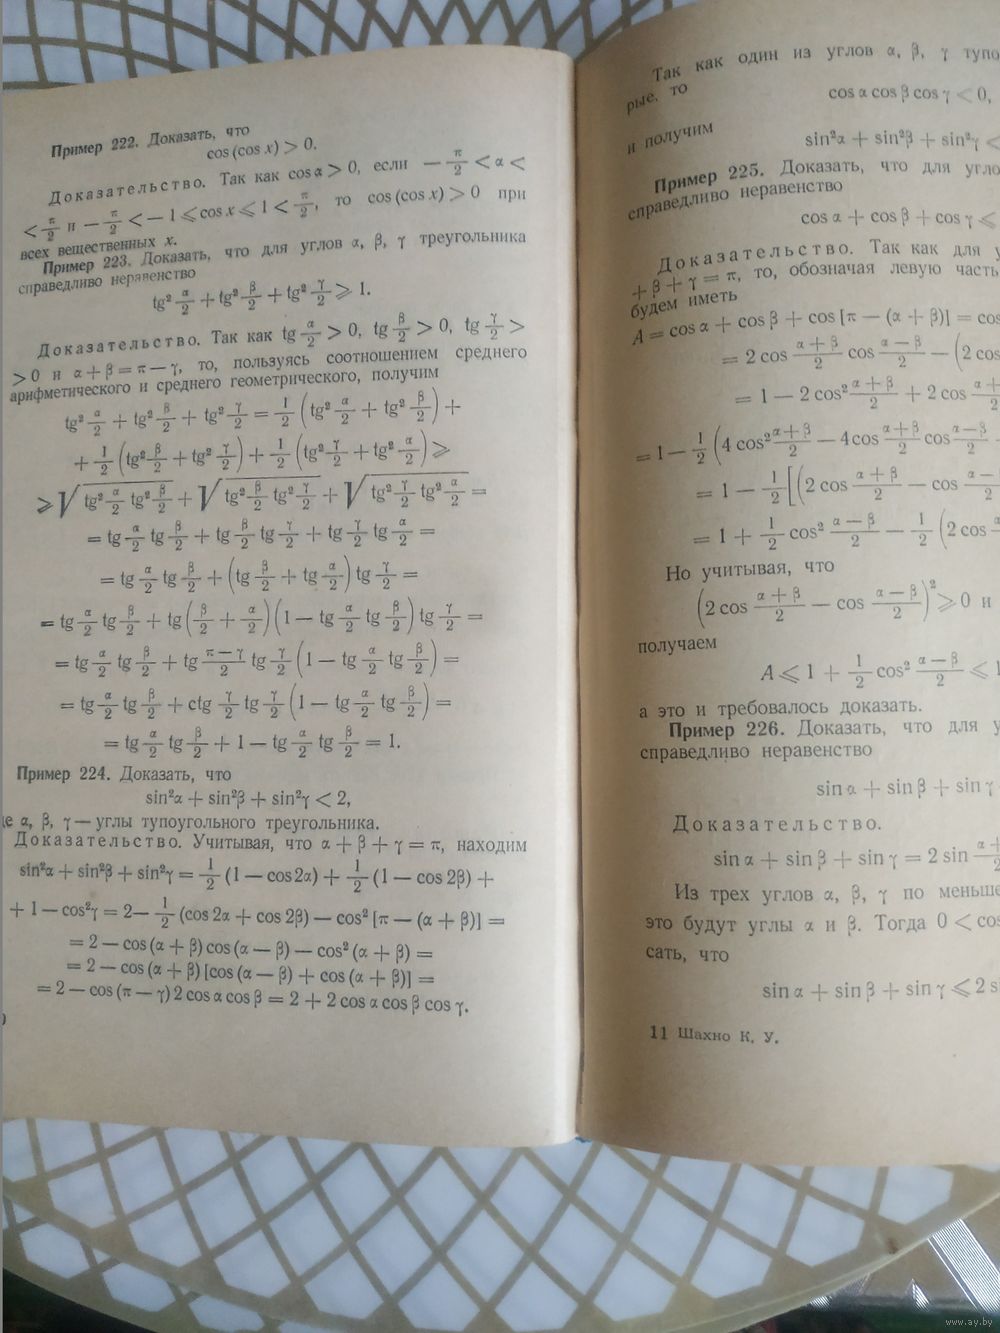 Пример 222. Доказать, что
cos (cos x) > 0.
Доказательство. Так как cos α > 0, если — π/2 < α <
< π/2 и — π/2 < — 1 ⩽ cos x ⩽ 1 < π/2, то cos (cos x) > 0 при
всех вещественных x.
Пример 223. Доказать, что для углов α, β, γ треугольника
справедливо неравенство
tg² α/2 + tg² β/2 + tg² γ/2 ⩾ 1.
Доказательство. Так как tg α/2 > 0, tg β/2 > 0, tg γ/2 >
> 0 и α + β = π — γ, то, пользуясь соотношением среднего
арифметического и среднего геометрического, получим
tg² α/2 + tg² β/2 + tg² γ/2 = 1/2 (tg² α/2 + tg² β/2) +
+ 1/2 (tg² β/2 + tg² γ/2) + 1/2 (tg² γ/2 + tg² α/2) ⩾
⩾ √(tg² α/2 tg² β/2) + √(tg² β/2 tg² γ/2) + √(tg² γ/2 tg² α/2) =
= tg α/2 tg β/2 + tg β/2 tg γ/2 + tg γ/2 tg α/2 =
= tg α/2 tg β/2 + (tg β/2 + tg α/2) tg γ/2 =
= tg α/2 tg β/2 + tg (β/2 + α/2) (1 — tg α/2 tg β/2) tg γ/2 =
= tg α/2 tg β/2 + tg (π — γ)/2 tg γ/2 (1 — tg α/2 tg β/2) =
= tg α/2 tg β/2 + ctg γ/2 tg γ/2 (1 — tg α/2 tg β/2) =
= tg α/2 tg β/2 + 1 — tg α/2 tg β/2 = 1.
Пример 224. Доказать, что
sin²α + sin²β + sin²γ < 2,
е α, β, γ — углы тупоугольного треугольника.
Доказательство. Учитывая, что α + β + γ = π, находим
sin²α + sin²β + sin²γ = 1/2 (1 — cos 2α) + 1/2 (1 — cos 2β) +
+ 1 — cos²γ = 2 — 1/2 (cos 2α + cos 2β) — cos² [π — (α + β)] =
= 2 — cos (α + β) cos (α — β) — cos² (α + β) =
= 2 — cos (α + β) [cos (α — β) + cos (α + β)] =
= 2 — cos (π — γ) 2 cos α cos β = 2 + 2 cos α cos β cos γ.
Так как один из углов α, β, γ тупо
рые, то
cos α cos β cos γ < 0,
и получим
sin²α + sin²β + sin²γ <
Пример 225. Доказать, что для угло
справедливо неравенство
cos α + cos β + cos γ ⩽
Доказательство. Так как для у
+ β + γ = π, то, обозначая левую часть
будем иметь
A = cos α + cos β + cos [π — (α + β)] = cos
= 2 cos (α + β)/2 cos (α — β)/2 — (2 cos
= 1 — 2 cos² (α + β)/2 + 2 cos α +
= 1 — 1/2 (4 cos² (α + β)/2 — 4 cos (α + β)/2 cos (α — β)/2
= 1 — 1/2 [(2 cos (α + β)/2 — cos α —
= 1 + 1/2 cos² (α — β)/2 — 1/2 (2 cos
Но учитывая, что
(2 cos (α + β)/2 — cos (α — β)/2)² ⩾ 0 и
получаем
A ⩽ 1 + 1/2 cos² (α — β)/2 ⩽ 1
а это и требовалось доказать.
Пример 226. Доказать, что для у
справедливо неравенство
sin α + sin β + sin γ
Доказательство.
sin α + sin β + sin γ = 2 sin α +
Из трех углов α, β, γ по меньше
это будут углы α и β. Тогда 0 < cos
сать, что
sin α + sin β + sin γ ⩽ 2 si
11 Шахно К. У.
www.ay.by